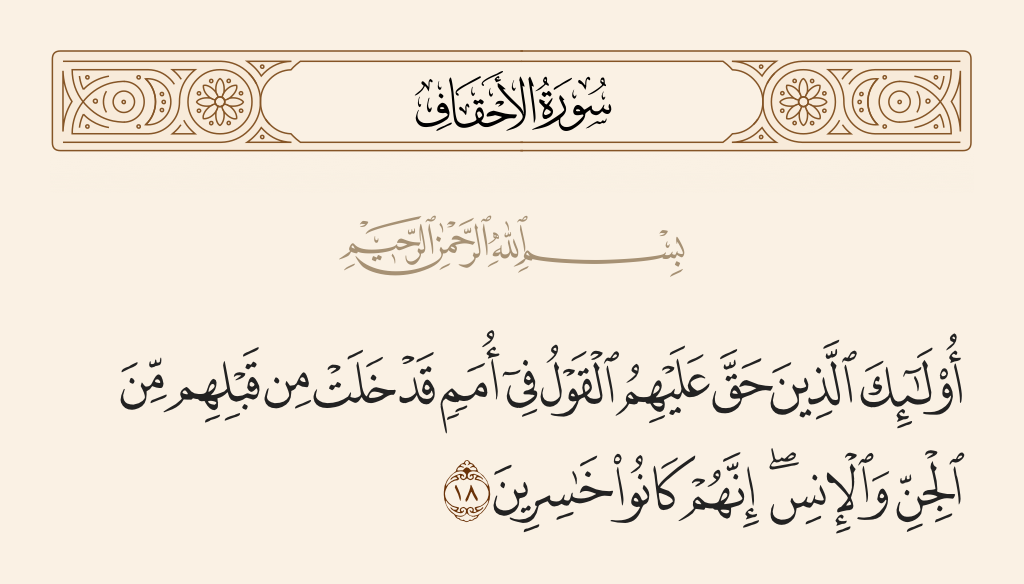 سُورَةُ الأَحْقَافِ
بِسْمِ ٱللَّهِ ٱلرَّحْمَٰنِ ٱلرَّحِيمِ
أُو۟لَـٰٓئِكَ ٱلَّذِينَ حَقَّ عَلَيْهِمُ ٱلْقَوْلُ فِىٓ أُمَمٍ قَدْ خَلَتْ مِن قَبْلِهِم مِّنَ
ٱلْجِنِّ وَٱلْإِنسِ ۖ إِنَّهُمْ كَانُوا۟ خَـٰسِرِينَ ١٨